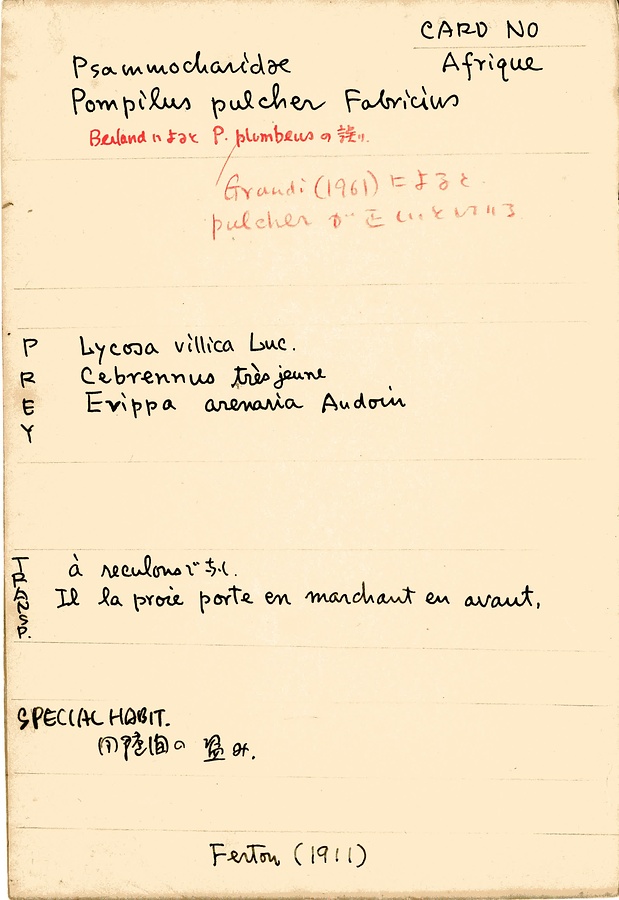 CARD NO
Psammocharidae Afrique
Pompilus pulcher Fabricius
Berland によると P. plumbeus の誤り.
Grandi (1961) によると
pulcher が正しいとしている
PREY
Lycosa villica Luc.
Cebrennus très jeune
Evippa arenaria Audouin
TRANSP.
à reculons でなく.
Il la proie porte en marchant en avant,
SPECIAL HABIT.
同種間の盗み.
Ferton (1911)